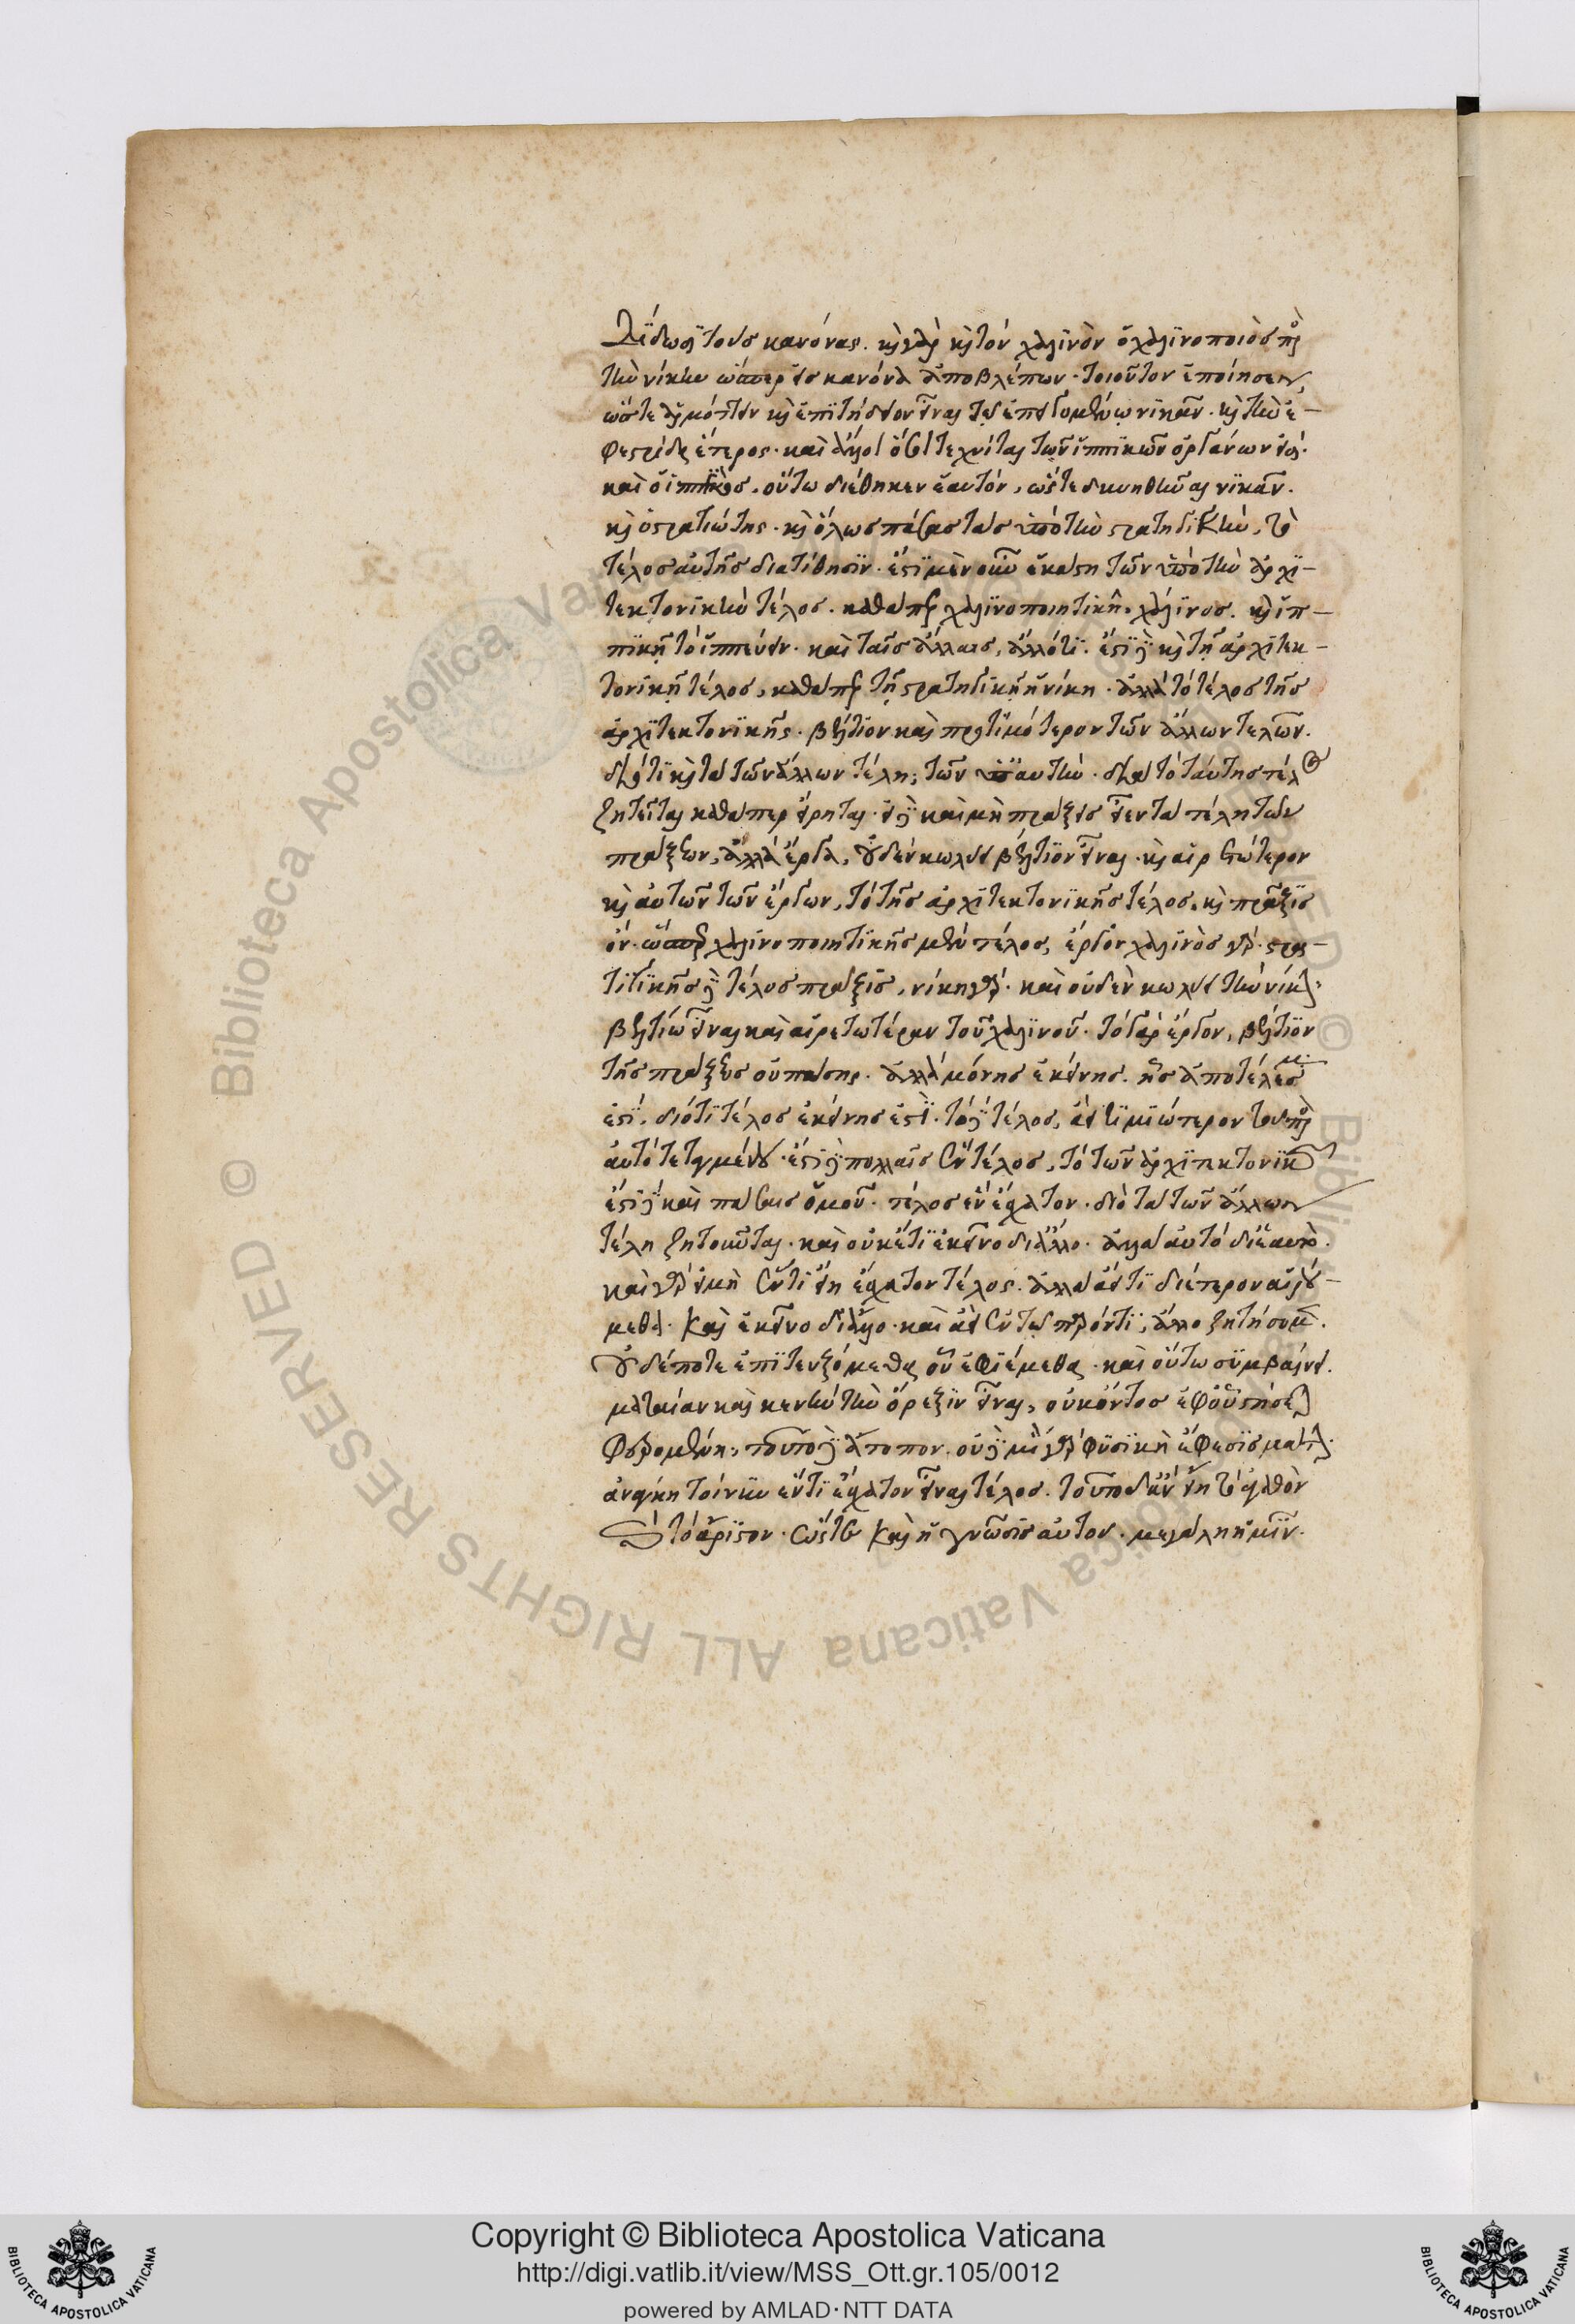 δίδωσι τοὺς κανόνας. καὶ γὰρ καὶ τὸν χαλινὸν ὁ χαλινοποιὸς πρὸς
τὴν νίκην ὥσπερ εἰς κανόνα ἀποβλέπων. τοιοῦτον ἐποίησεν,
ὥστε ἁρμόττειν καὶ ἐπιτήδειον εἶναι τῷ νικᾶν. καὶ τὴν ἐ-
φεστρίδα ἕτερος. καὶ ἄλλοι ὅσοι τεχνίται τῶν ἱππικῶν ὀργάνων εἰσί.
καὶ ὁ ἱππικὸς. οὕτω διέθηκεν ἑαυτόν, ὥστε δυνηθῆναι νικᾶν.
καὶ ὁ στρατιώτης. καὶ ὅλως πάσας τὰς ὑπὸ τὴν στρατηγικὴν, τὸ
τέλος αὐτῆς διατίθησιν. ἔστι μὲν οὖν ἑκάστη τῶν ὑπὸ τὴν ἀρχι-
τεκτονικὴν τέλος. καθάπερ χαλινοποιητικῇ. χαλινός. καὶ ἱπ-
πικῇ τὸ ἱππεύειν. καὶ ταῖς ἄλλαις, ἄλλό τι. ἔστι δὲ καὶ τῇ ἀρχιτεκ-
τονικῇ τέλος, καθάπερ τῇ στρατηγικῇ ἡ νίκη. ἀλλὰ τὸ τέλος τῆς
ἀρχιτεκτονικῆς. βέλτιον καὶ προτιμότερον τῶν ἄλλων τελῶν.
διότι καὶ τὰ τῶν ἄλλων τέλη, τῶν ὑπ' αὐτὴν. διὰ τὸ ταύτης τέλος
ζητεῖται καθάπερ εἴρηται. εἰ δὲ καὶ μὴ πράξεις εἶεν τὰ τέλη τῶν
πράξεων, ἀλλὰ ἔργα, οὐδὲν κωλύει βέλτιον εἶναι. καὶ αἱρετώτερον
καὶ αὐτῶν τῶν ἔργων, τὸ τῆς ἀρχιτεκτονικῆς τέλος, καὶ πρᾶξις
ὄν. ὥσπερ χαλινοποιητικῆς μὲν τέλος, ἔργον χαλινὸς γάρ. στρα-
τιτικῆς δὲ τέλος πρᾶξις, νίκη γάρ. καὶ οὐδὲν κωλύει τὴν νίκην
βελτίω εἶναι καὶ αἱρετωτέραν τοῦ χαλινοῦ. τὸ γὰρ ἔργον, βέλτιον
τῆς πράξεως οὐ πάσης. ἀλλὰ μόνης ἐκείνης. ἧς ἀποτέλεσμα
ἐστί, διότι τέλος ἐκείνης ἐστί. τὸ δὲ τέλος, ἀεὶ τιμιώτερον τοῦ πρὸς
αὐτὸ τεταγμένου. ἔστι δὲ πολλαῖς ἓν τέλος, τὸ τῶν ἀρχιτεκτονικῶν
ἔστι δὲ καὶ πάσαις ὁμοῦ. τέλος ἓν ἔσχατον. διὸ τὰ τῶν ἄλλων
τέλη ζητοῦνται. καὶ οὐκέτι ἐκεῖνο δι' ἄλλο. ἀλλὰ αὐτὸ δι' ἑαυτό.
καὶ γὰρ εἰ μὴ ἕν τι εἴη ἔσχατον τέλος. ἀλλὰ ἀεί τι δι' ἕτερον αἱρού-
μεθα. καὶ ἐκεῖνο δι' ἄλλο. καὶ ἀεὶ ἐν τῷ παρόντι, ἄλλο ζητήσομεν.
οὐδέποτε ἐπιτευξόμεθα οὗ ἐφιέμεθα. καὶ οὕτω συμβαίνει.
ματαίαν καὶ κενὴν τὴν ὄρεξιν εἶναι, οὐκ ὄντος ἐφ' οὗ στήσεται
φερομένη, τοῦτο δὲ ἄτοπον. οὐδὲ μία γὰρ φυσικὴ ἔφεσις ματαία.
ἀνάγκη τοίνυν ἕν τι ἔσχατον εἶναι τέλος. τοῦτο δ' ἂν εἴη τἀγαθὸν
καὶ τὸ ἄριστον. ὥστε καὶ ἡ γνῶσις αὐτοῦ. μεγάλη ἡμῖν.
Copyright © Biblioteca Apostolica Vaticana
http://digi.vatlib.it/view/MSS_Ott.gr.105/0012
powered by AMLAD·NTT DATA